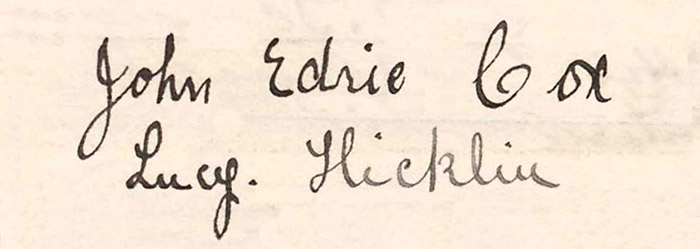 John Edrie Cox
Lucy. Hicklin